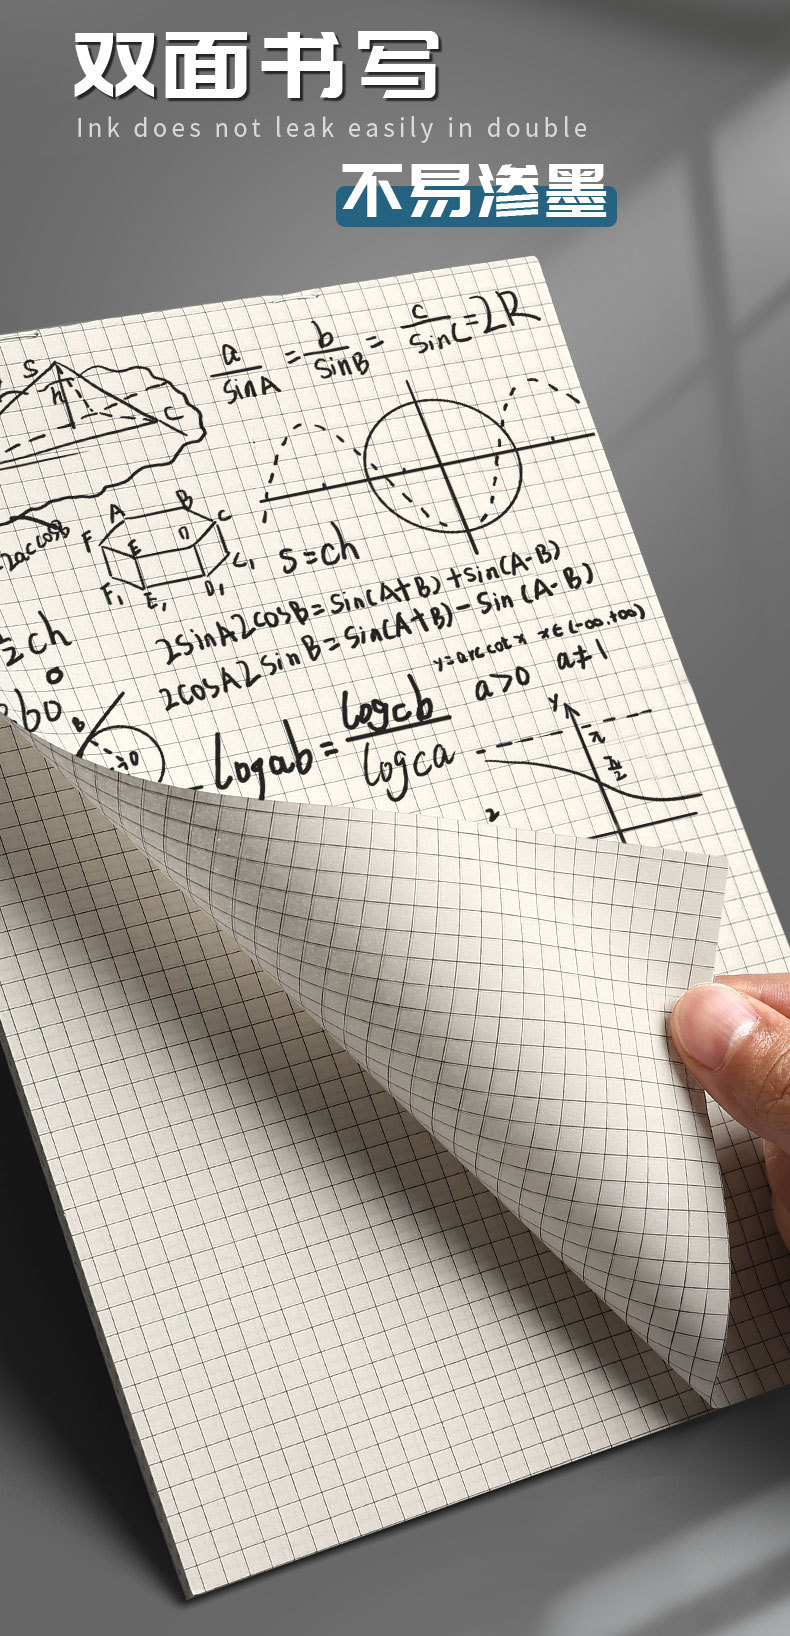 双面书写
Ink does not leak easily in double
不易渗墨
a/sinA = b/sinB = c/sinC = 2R
S
h
C
2ac cosB
A B
F E D C
F₁ E₁ D₁ C₁
S=ch
2sinA2cosB=sin(A+B)+sin(A-B)
2cosA2sinB=sin(A+B)-sin(A-B)
½ch
y=arccotx x∈(-∞,+∞)
a>0 a≠1
B
logab=logcb/logca
y
π
π/2
2